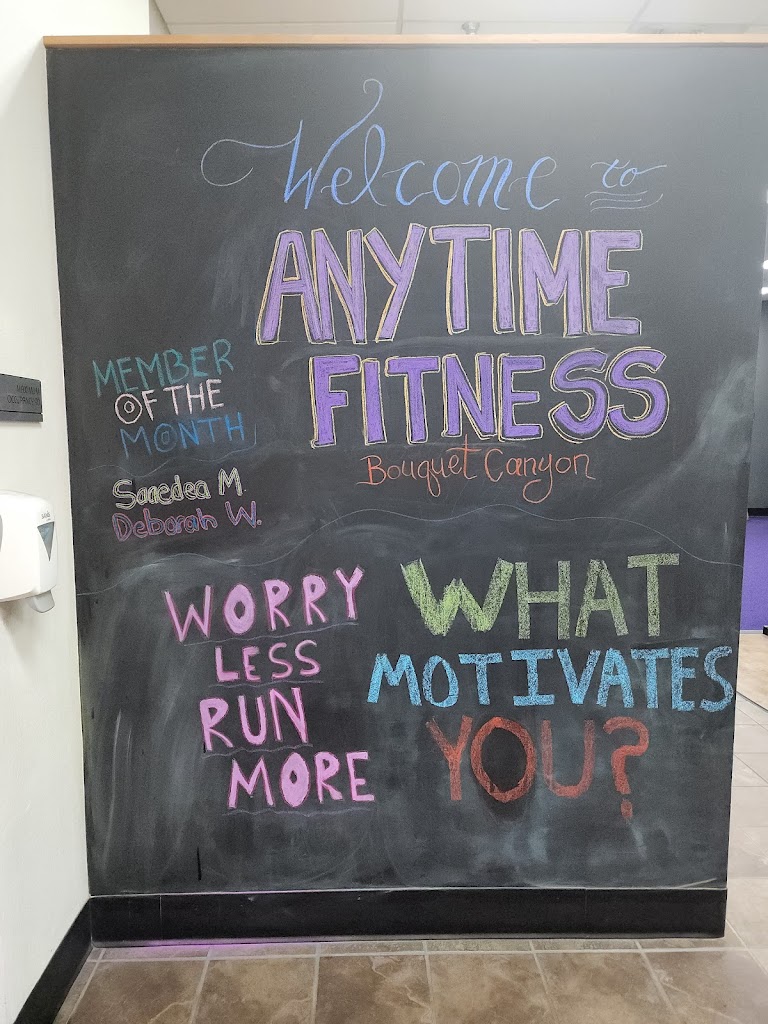 Welcome to
ANYTIME
FITNESS
Bouquet Canyon
MEMBER
OF THE
MONTH
Sanedea M.
Deborah W.
WORRY
LESS
RUN
MORE
WHAT
MOTIVATES
YOU?